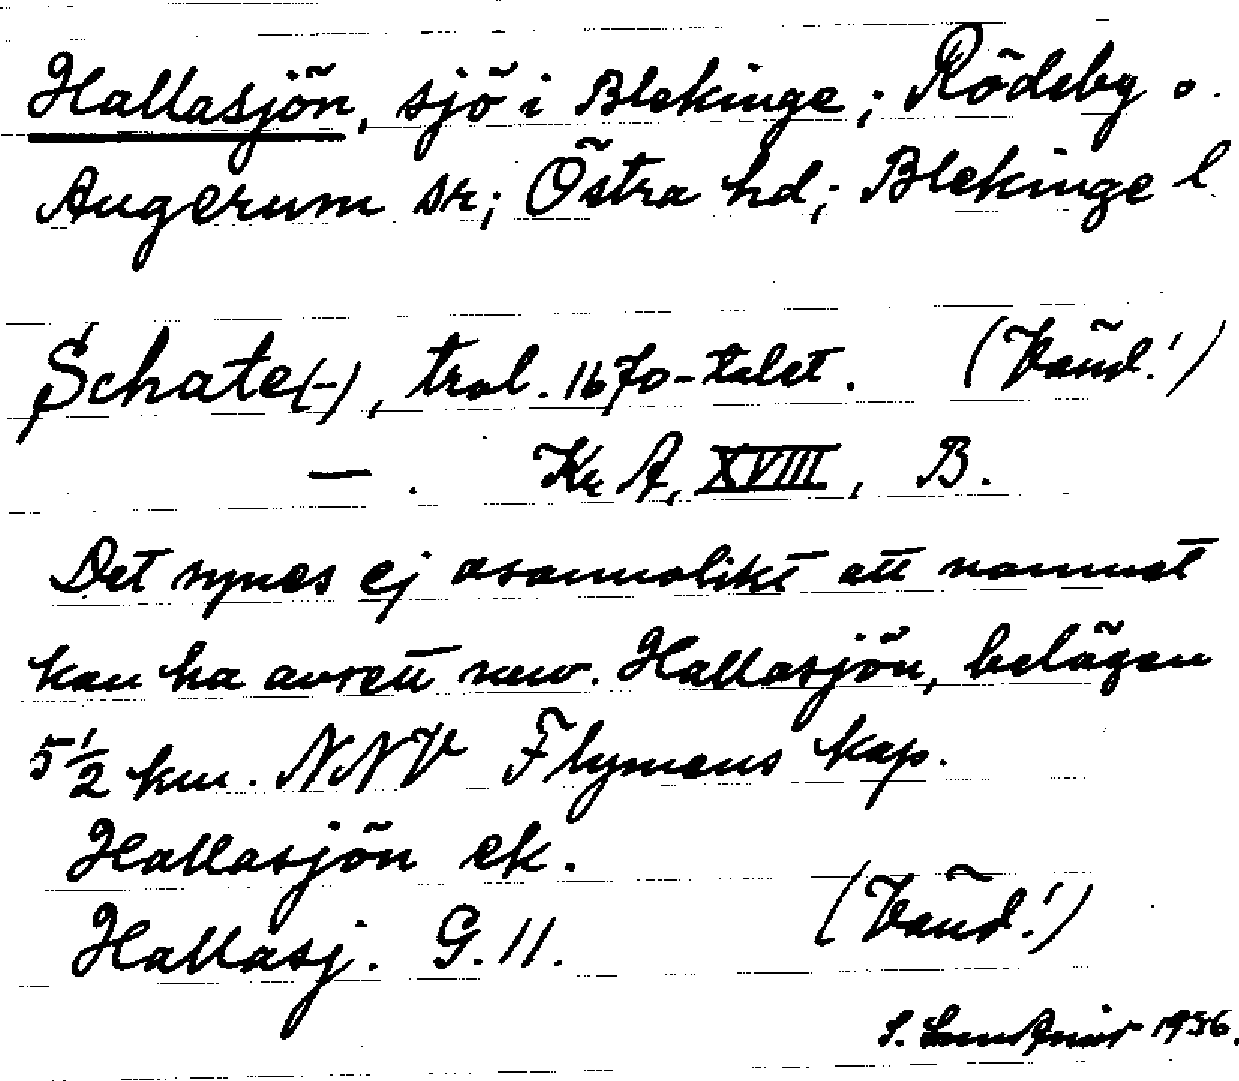 Hallasjön, sjö i Blekinge; Rödeby o.
Augerum sr; Östra hd; Blekinge l
Schate(-), trol. 1670-talet. (Vänd!)
— . Kr A, XVIII, B.
Det synes ej osannolikt att namnet
kan ha avsett nuv. Hallasjön, belägen
5 1/2 km. NNV Flymens kap.
Hallasjön ek.
Hallasj. G. 11. (Vänd!)
S. 1956.